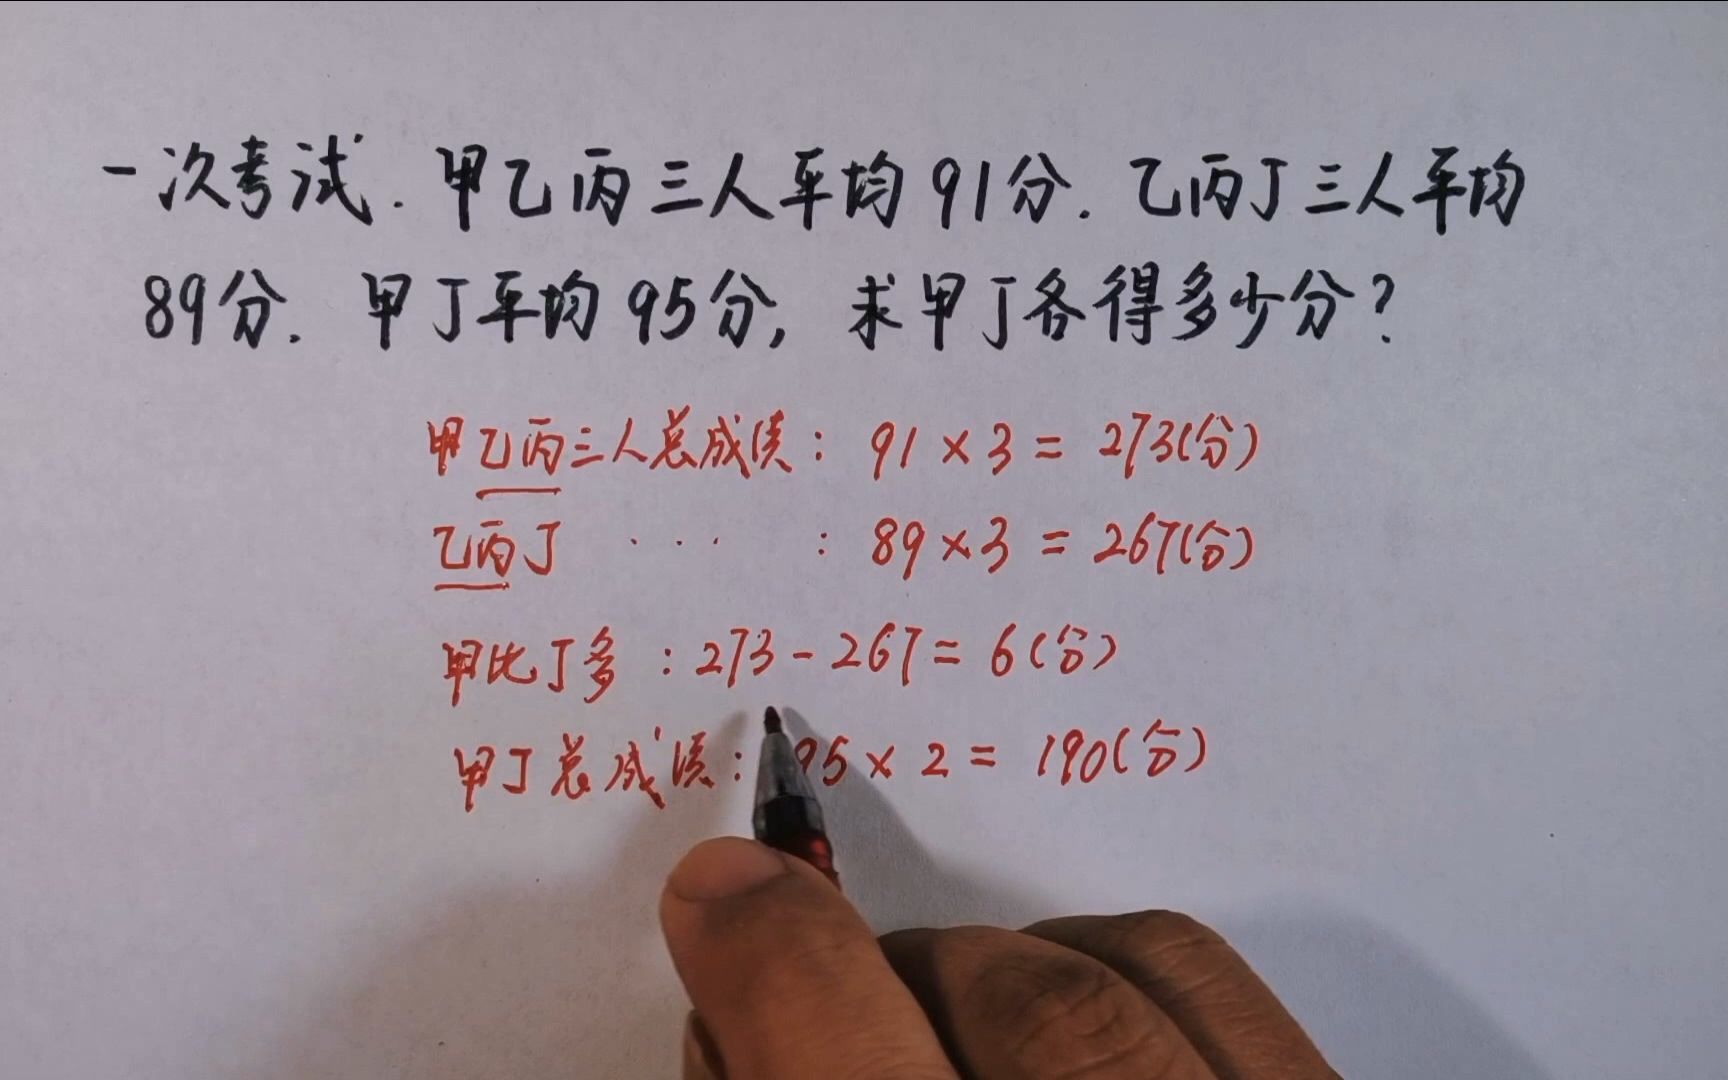 一次考试.甲乙丙三人平均91分.乙丙丁三人平均
89分.甲丁平均95分,求甲丁各得多少分?
甲乙丙三人总成绩:91×3=273(分)
乙丙丁 ··· :89×3=267(分)
甲比丁多:273-267=6(分)
甲丁总成绩:95×2=190(分)